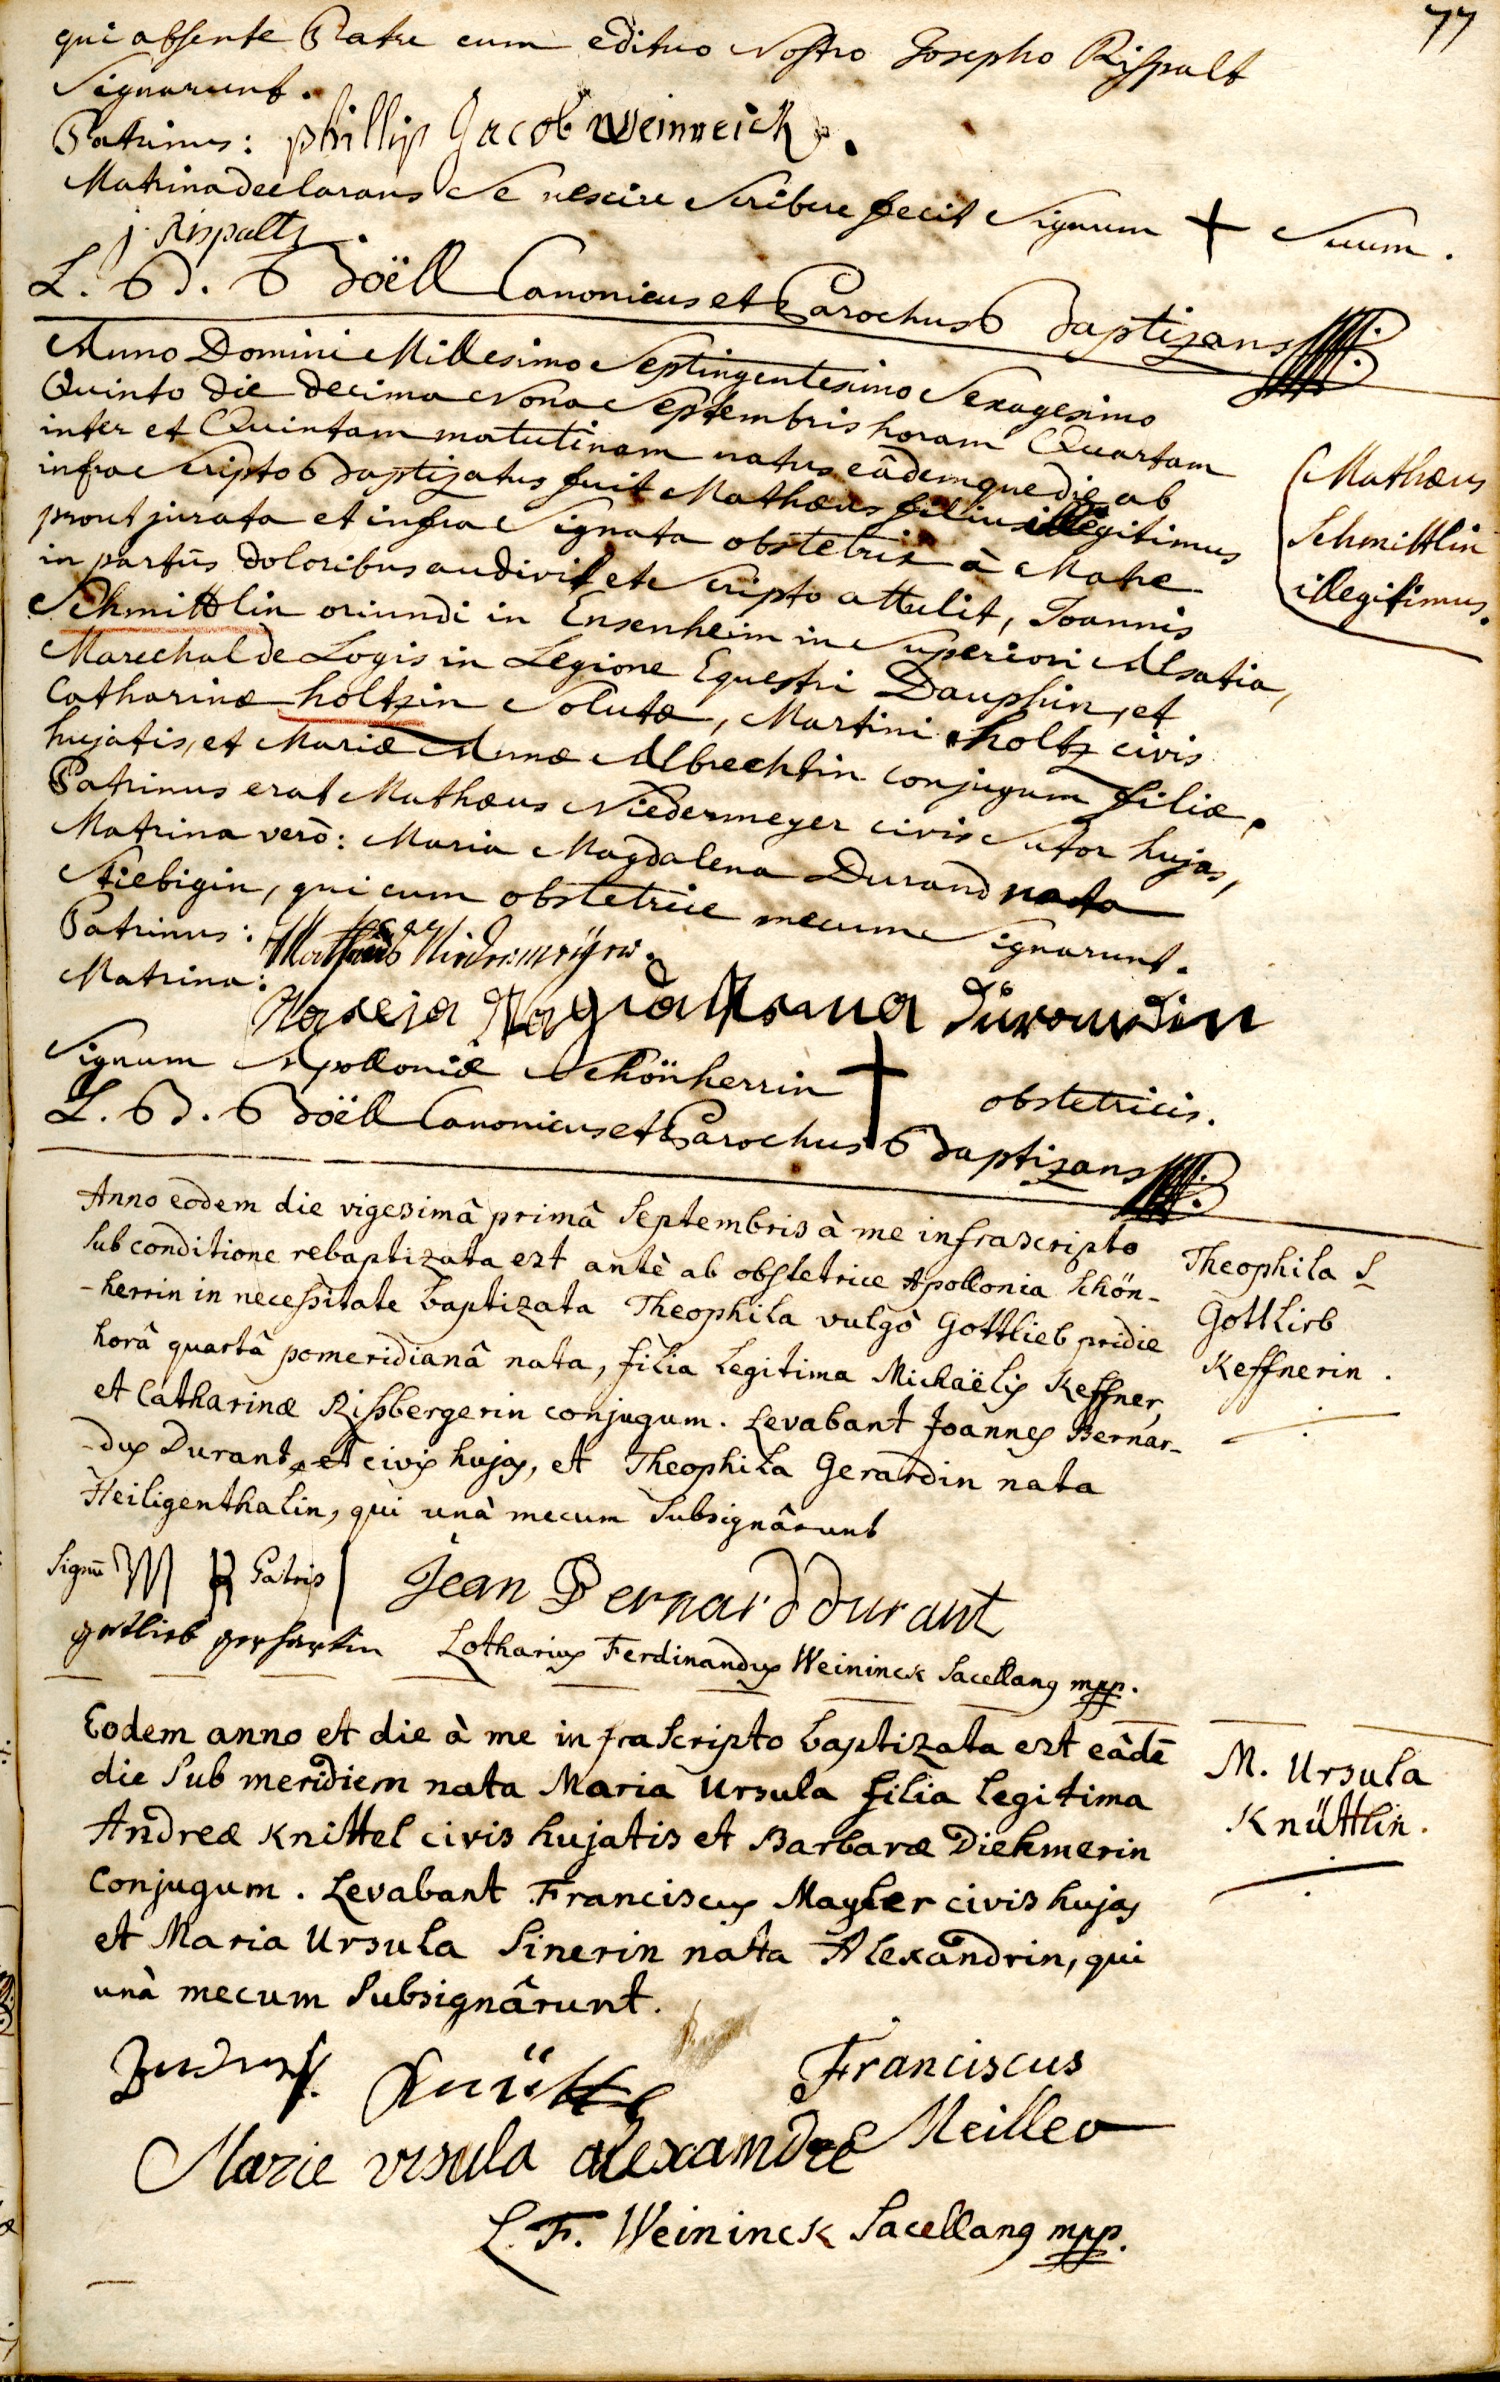 77
qui absente Patre cum ædituo Nostro Josepho Rispalt
Signarunt.
Patrinus: phillip Jacob Weinreich.
Matrina declarans Se nescire Scribere fecit Signum + Suum.
j. Rispaltz
L. B. Boëll Canonicus et Parochus Baptizans
Anno Domini Millesimo Septingentesimo Sexagesimo
Quinto die decima Nona Septembris horam Quartam
inter et Quintam matutinam natus eâdemque die ab
infra Scripto Baptizatus fuit Mathæus filius illegitimus
prout jurata et infra Signata obstetrix à Matre
in partûs doloribus audivit et Scripto attulit, Joannis
Schmittlin oriundi in Ensenheim in Superiori Alsatia,
Marechal de Logis in Legione Equestri Dauphin, et
Catharinæ holtzin Solutæ, Martini holtz civis
hujatis, et Mariæ Annæ Albrechtin conjugum filiæ.
Patrinus erat Mathæus Niedermeyer civis Sutor hujas,
Matrina verò: Maria Magdalena Durand nata
Stiebigin, qui cum obstetrice mecum Signarunt.
Mathæus
Schmittlin
illegitimus.
Patrinus: Niedermeÿer.
Matrina:
Durandin
Signum Apolloniæ Schönherrin + obstetricis.
L. B. Boëll Canonicus et Parochus Baptizans
Anno eodem die vigesimâ primâ Septembris à me infrascripto
Sub conditione rebaptizata est antè ab obstetrice Apollonia Schön-
-herrin in necessitate baptizata Theophila vulgò Gottlieb pridie
horâ quartâ pomeridianâ nata, filia legitima Michaëlis Keffner,
et Catharinæ Rissbergerin conjugum. Levabant Joannes Bernar-
-dus Durant et civis hujas, et Theophila Gerardin nata
Heiligenthalin, qui unà mecum Subsignârunt
Theophila S
Gottlieb
Keffnerin.
Signū M K Patris
Jean Bernard durant
gotlieb gerhartin Lotharius Ferdinandus Weininck Sacellang mpp.
Eodem anno et die à me infraScripto baptizata est eâdē
die Sub meridiem nata Maria Ursula filia legitima
Andreæ Knittel civis hujatis et Barbaræ Diehmerin
Conjugum. Levabant Franciscus Mayler civis hujas
et Maria Ursula Sinerin nata Alexandrin, qui
unà mecum Subsignârunt.
M. Ursula
Knüttlin.
Franciscus
Meiller
Marie vrsula alexandre
L. F. Weininck Sacellang mpp.